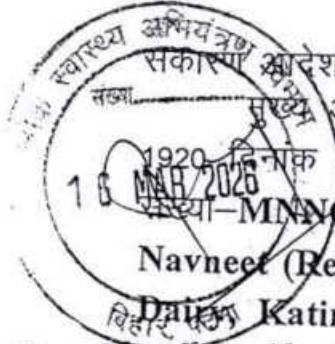 लोक स्वास्थ्य अभियंत्रण
सकारण आदेश
संख्या
मुख्य
1920 दिनांक
16 MAR 2026
संख्या–MNN
Navneet (Re
Dairy, Katir
बिहार, पटना